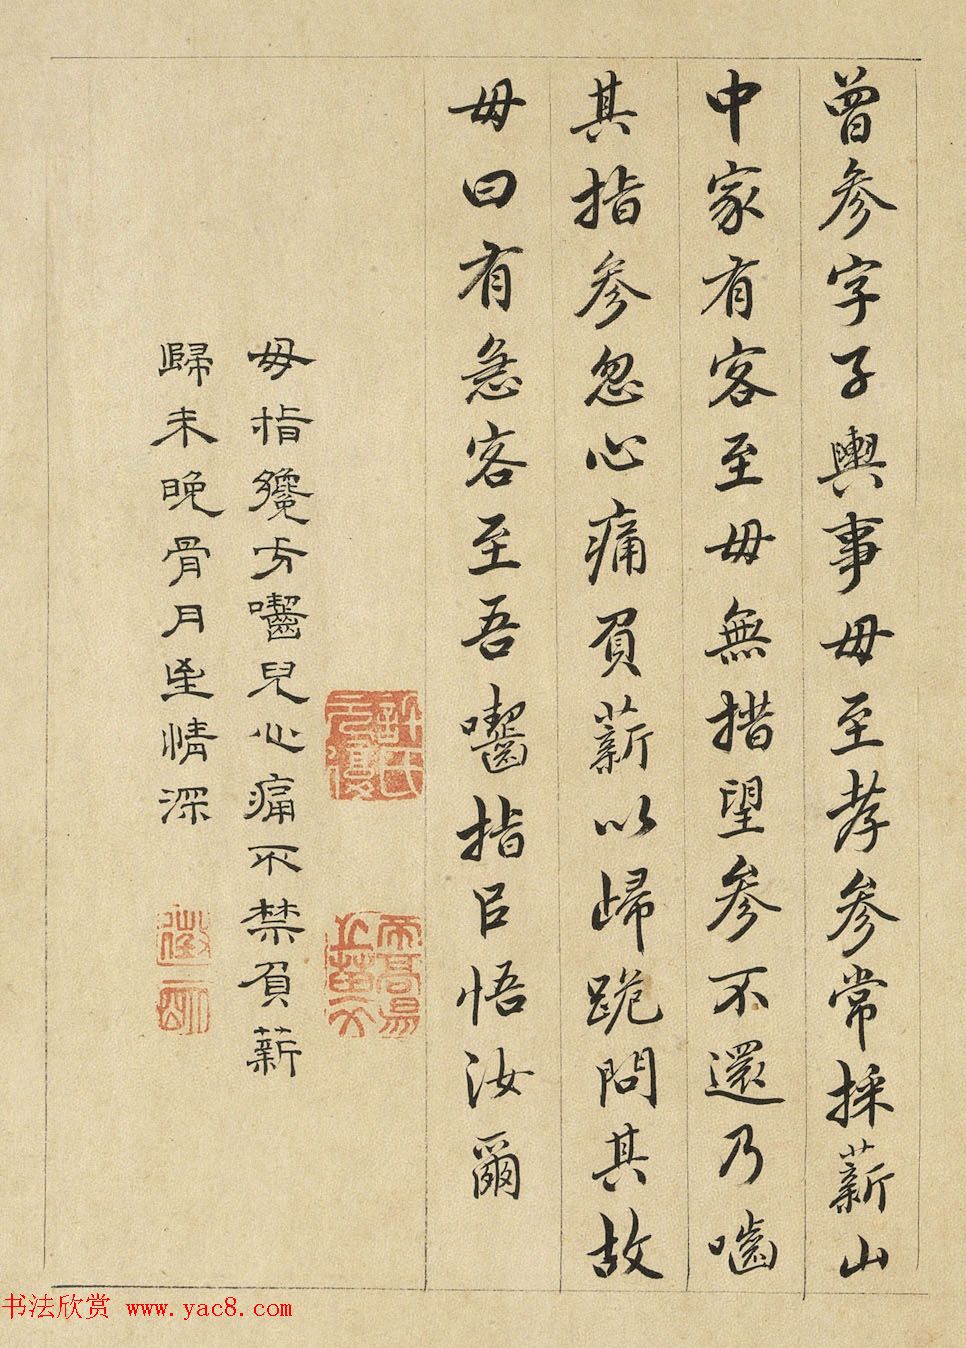 曾參字子輿事母至孝參常採薪山
中家有客至母無措望參不還乃嚙
其指參忽心痛負薪以歸跪問其故
母曰有急客至吾嚙指以悟汝爾
母指纔方嚙兒心痛不禁負薪
歸未晚骨月至情深
书法欣赏 www.yac8.com